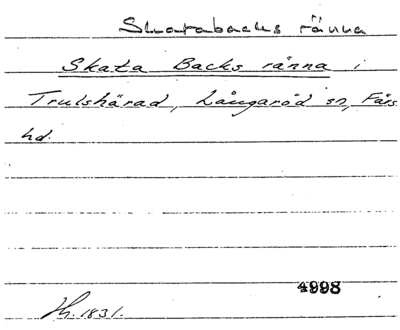 Skatabacks ränna
Skata Backs ränna i
Trulshärad, Långaröd sn, Färs
hd.
4998
1831.